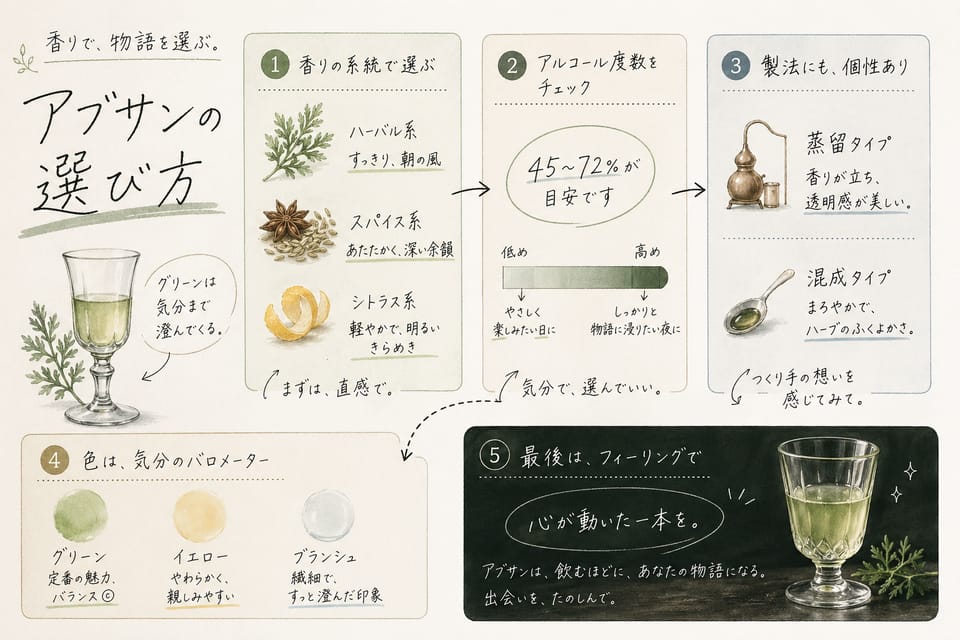 香りで、物語を選ぶ。
アブサンの
選び方
グリーンは
気分まで
澄んでくる。
1 香りの系統で選ぶ
ハーバル系
すっきり、朝の風
スパイス系
あたたかく、深い余韻
シトラス系
軽やかで、明るい
きらめき
まずは、直感で。
2 アルコール度数を
チェック
45~72%が
目安です
低め 高め
やさしく
楽しみたい日に
しっかりと
物語に浸りたい夜に
気分で、選んでいい。
3 製法にも、個性あり
蒸留タイプ
香りが立ち、
透明感が美しい。
混成タイプ
まろやかで、
ハーブのふくよかさ。
つくり手の想いを
感じてみて。
4 色は、気分のバロメーター
グリーン
定番の魅力、
バランス©
イエロー
やわらかく、
親しみやすい
ブランシュ
繊細で、
すっと澄んだ印象
5 最後は、フィーリングで
心が動いた一本を。
アブサンは、飲むほどに、あなたの物語になる。
出会いを、たのしんで。